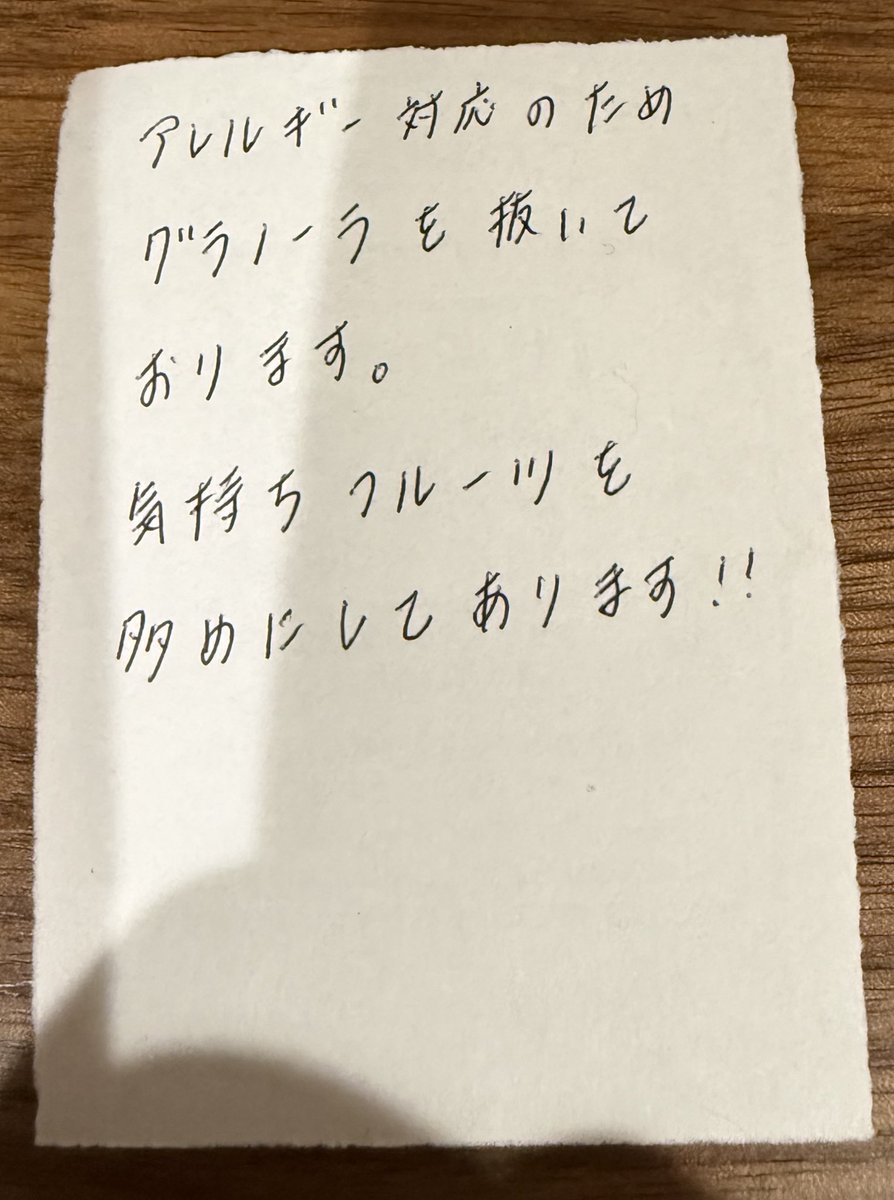 アレルギー対応のため
グラノーラを抜いて
おります。
気持ちフルーツを
多めにしてあります!!